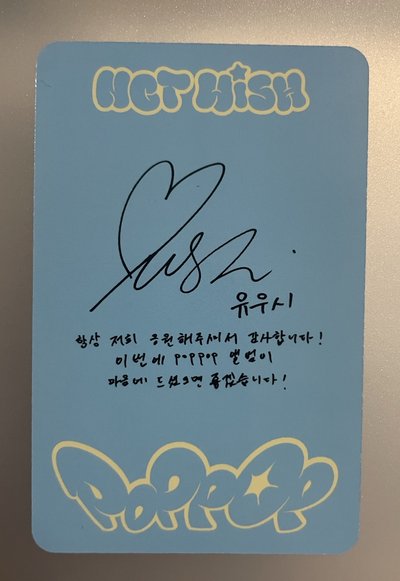 NCT WISH
Yushi
유우시
항상 저희 응원해주셔서 감사합니다!
이번에 POPPOP 앨범이
마음에 드셨으면 좋겠습니다!
POPPOP